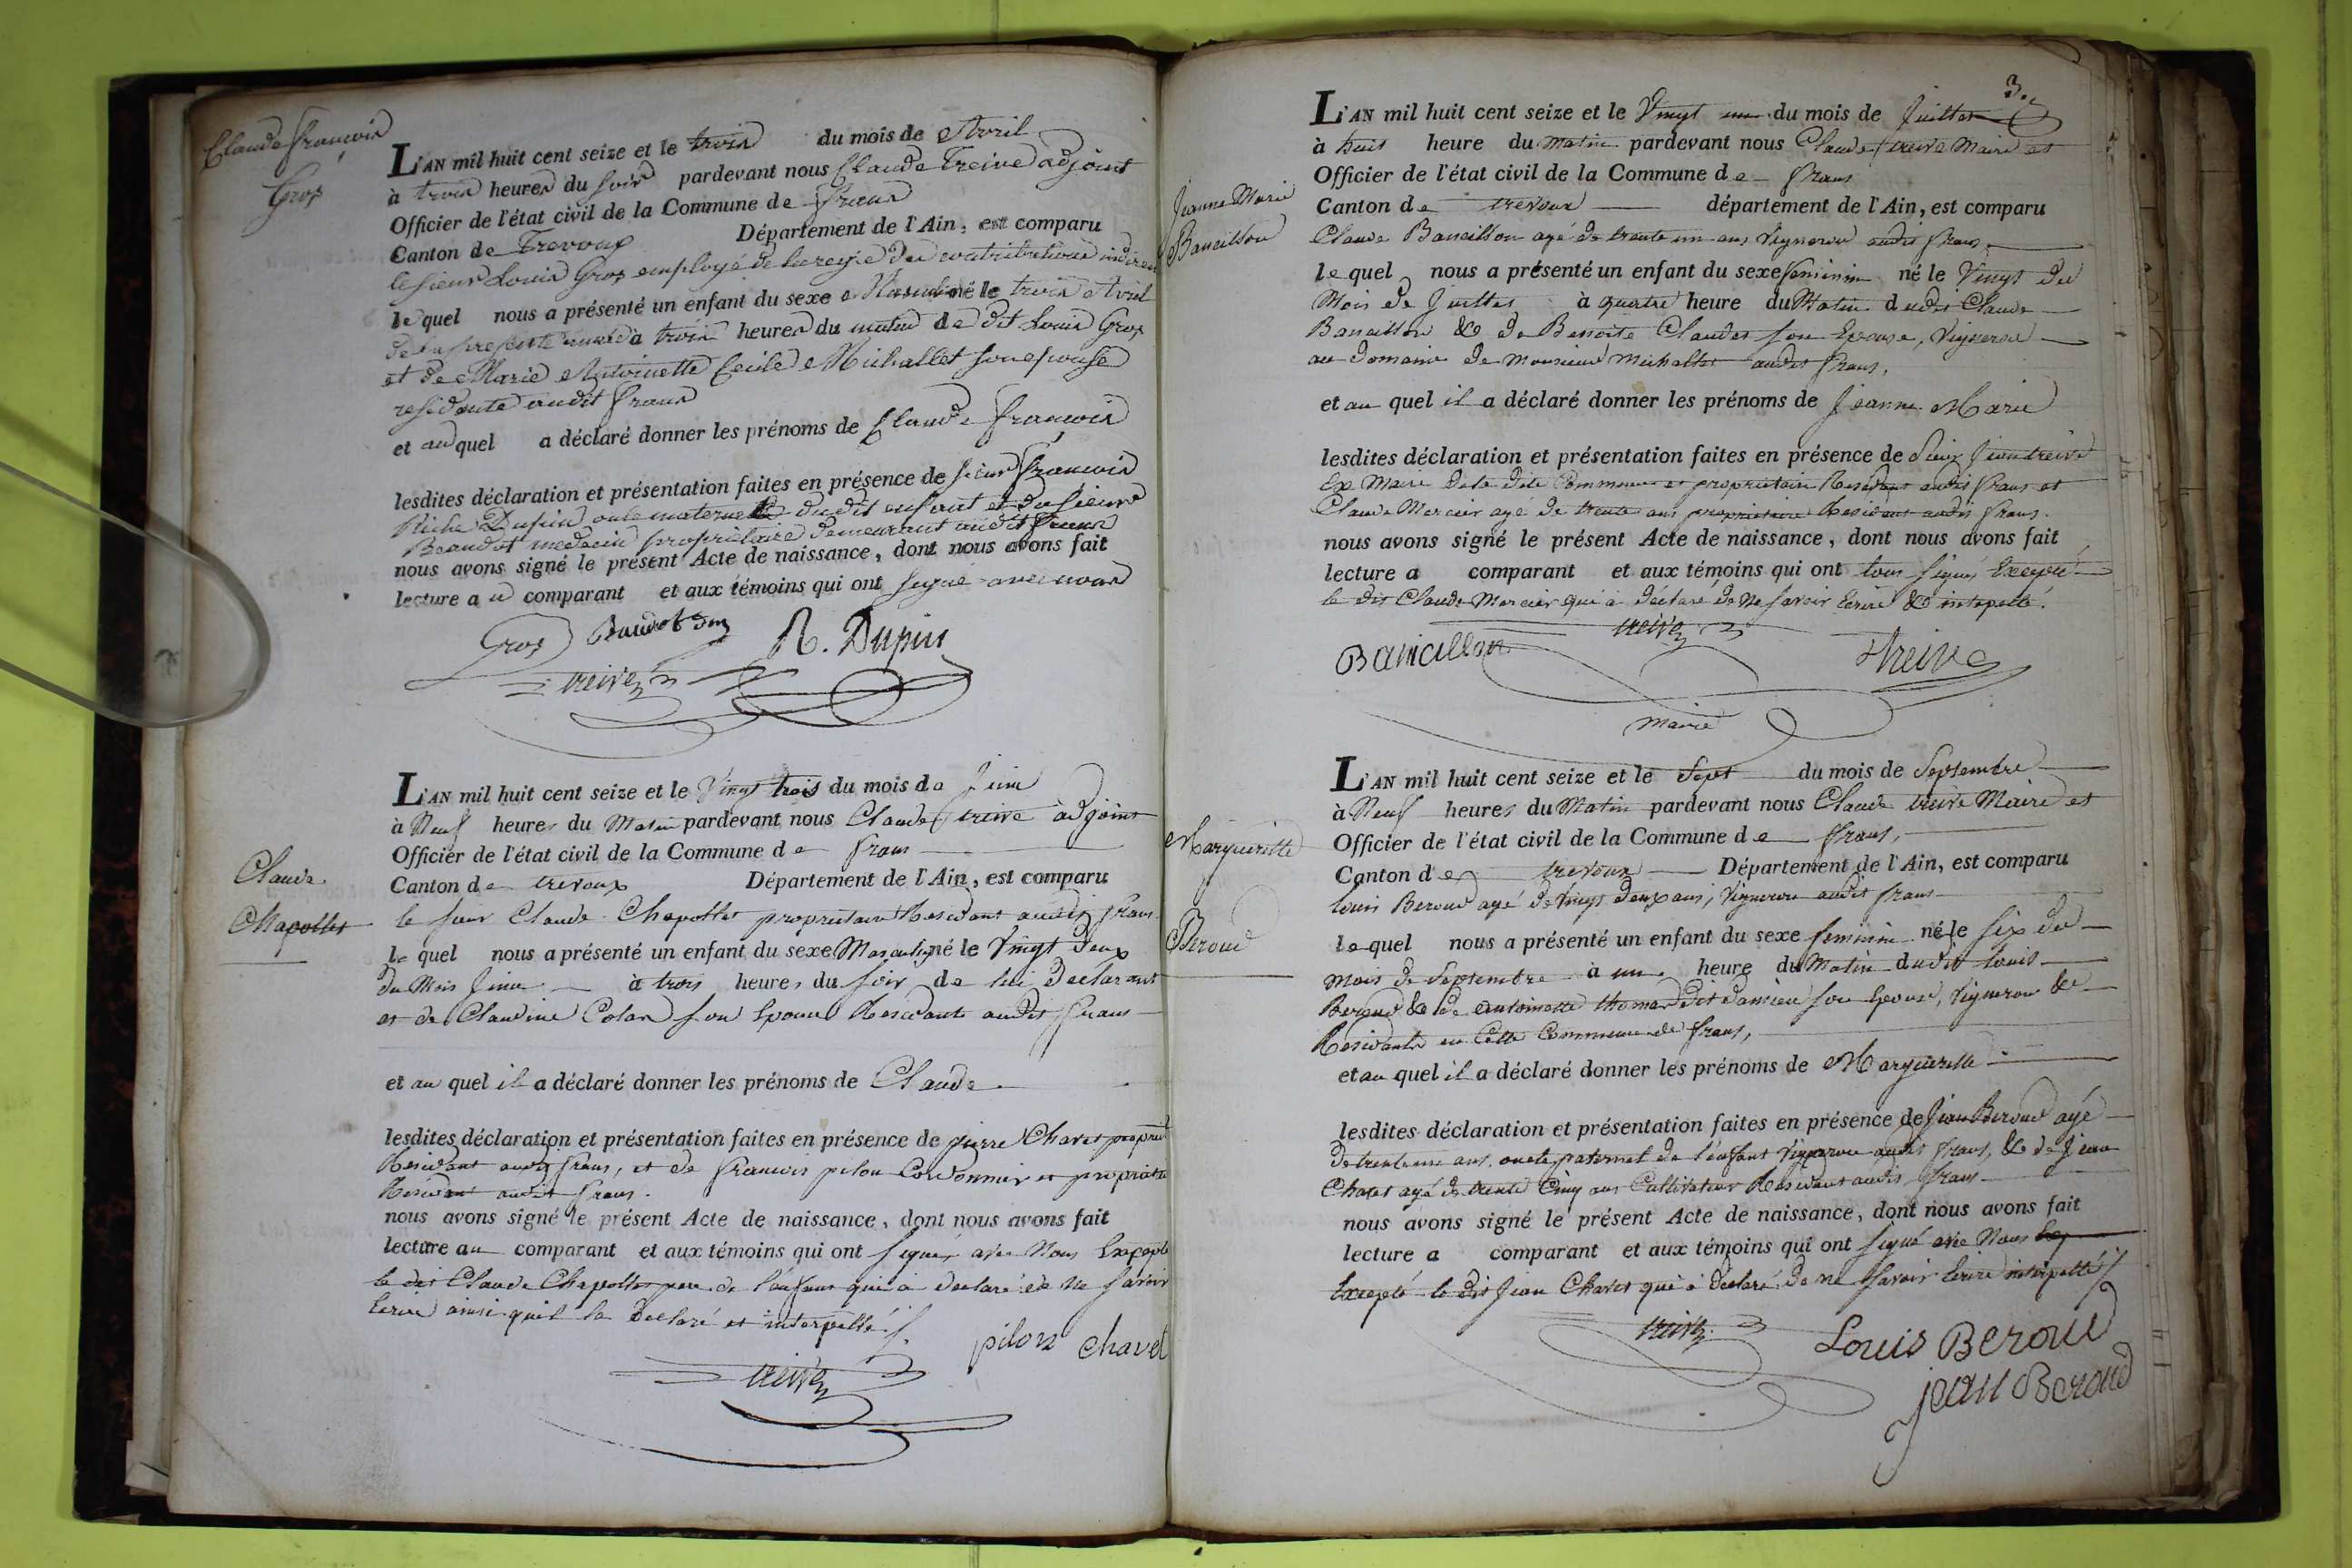 Claude françois
Gros
L'AN mil huit cent seize et le trois du mois de Avril
à trois heures du soir pardevant nous Claude Treive adjoint
Officier de l'état civil de la Commune de frans
Canton de Trevoux Département de l'Ain, est comparu
le sieur Louis Gros employé de la regie des contributions
le quel nous a présenté un enfant du sexe Masculin né le trois Avril
de la presente année à trois heures du matin de dit Louis Gros
et de Marie Antoinette Cecile Michallet son epouse
residante audit frans
et au quel a déclaré donner les prénoms de Claude françois
lesdites déclaration et présentation faites en présence de sieur françois
Riche Dupin oncle maternel du dit enfant et du sieur
Beaudot medecin propriétaire demeurant audit frans
nous avons signé le présent Acte de naissance, dont nous avons fait
lecture a u comparant et aux témoins qui ont signé avec nous
Gros Baudot R. Dupin
treive
Claude
Chapollet
L'AN mil huit cent seize et le Vingt trois du mois de Juin
à Neuf heures du Matin pardevant nous Claude treive adjoint
Officier de l'état civil de la Commune de frans
Canton de trevoux Département de l'Ain, est comparu
le sieur Claude Chapollet proprietaire Residant audit frans
le quel nous a présenté un enfant du sexe Masculin né le Vingt deux
du Mois Juin à trois heures du soir de lui Declarant
et de Claudine Colas son Epouse Residante audit frans
et au quel il a déclaré donner les prénoms de Claude
lesdites déclaration et présentation faites en présence de pierre Chavet
Residant audit frans, et de francois pilon Cordonnier et propriétre
Residant audit frans.
nous avons signé le présent Acte de naissance, dont nous avons fait
lecture au comparant et aux témoins qui ont signés avec Nous Excepté
le dit Claude Chapollet pere de l'enfant qui a declaré de ne savoir
Ecrire ainsi qu'il la Declaré et interpellé.
pilon chavet
treive
3.
Jeanne Marie
Bancillon
L'AN mil huit cent seize et le Vingt un du mois de Juillet
à huit heure du matin pardevant nous Claude treive Maire et
Officier de l'état civil de la Commune de frans
Canton de trevoux département de l'Ain, est comparu
Claude Bancillon agé de trente un ans Vigneron audit frans
le quel nous a présenté un enfant du sexe feminin né le Vingt du
Mois de Juillet à quatre heure du Matin dudit Claude
Bancillon & de Benoite Claudet son Epouse, Vigneron
au Domaine de Monsieur Michallet audit frans,
et au quel il a déclaré donner les prénoms de Jeanne Marie
lesdites déclaration et présentation faites en présence de Sieur Jean treive
Ex Maire de la dite Commune et proprietaire Residant audit frans et
Claude Mercier agé de trente ans proprietaire Residant audit frans.
nous avons signé le présent Acte de naissance, dont nous avons fait
lecture a comparant et aux témoins qui ont tous signés Excepté
le dit Claude Mercier qui a déclaré de Ne savoir Ecrire & interpellé.
treive
Bancillon Treive
Maire
Margueritte
Beroud
L'AN mil huit cent seize et le Sept du mois de Septembre
à Neuf heures du Matin pardevant nous Claude treive Maire et
Officier de l'état civil de la Commune de frans,
Canton de trevoux Département de l'Ain, est comparu
Louis Beroud agé de Vingt deux ans, Vigneron audit frans
le quel nous a présenté un enfant du sexe feminin né le six du
mois de Septembre à une heure du Matin dudit Louis
Beroud & de Antoinette thomas Dit Damien son Epouse, Vigneron &
Residants en Cette Commune de frans,
et au quel il a déclaré donner les prénoms de Margueritte
lesdites déclaration et présentation faites en présence de Jean Beroud agé
de trente un ans, oncle paternel de l'enfant Vigneron audit frans, & de Jean
Chavet agé de trente Cinq ans Cultivateur Residant audit frans
nous avons signé le présent Acte de naissance, dont nous avons fait
lecture a comparant et aux témoins qui ont signé avec Nous
Excepté le dit Jean Chavet qui a déclaré de ne savoir Ecrire interpellé
treive
Louis Beroud
jean Beroud